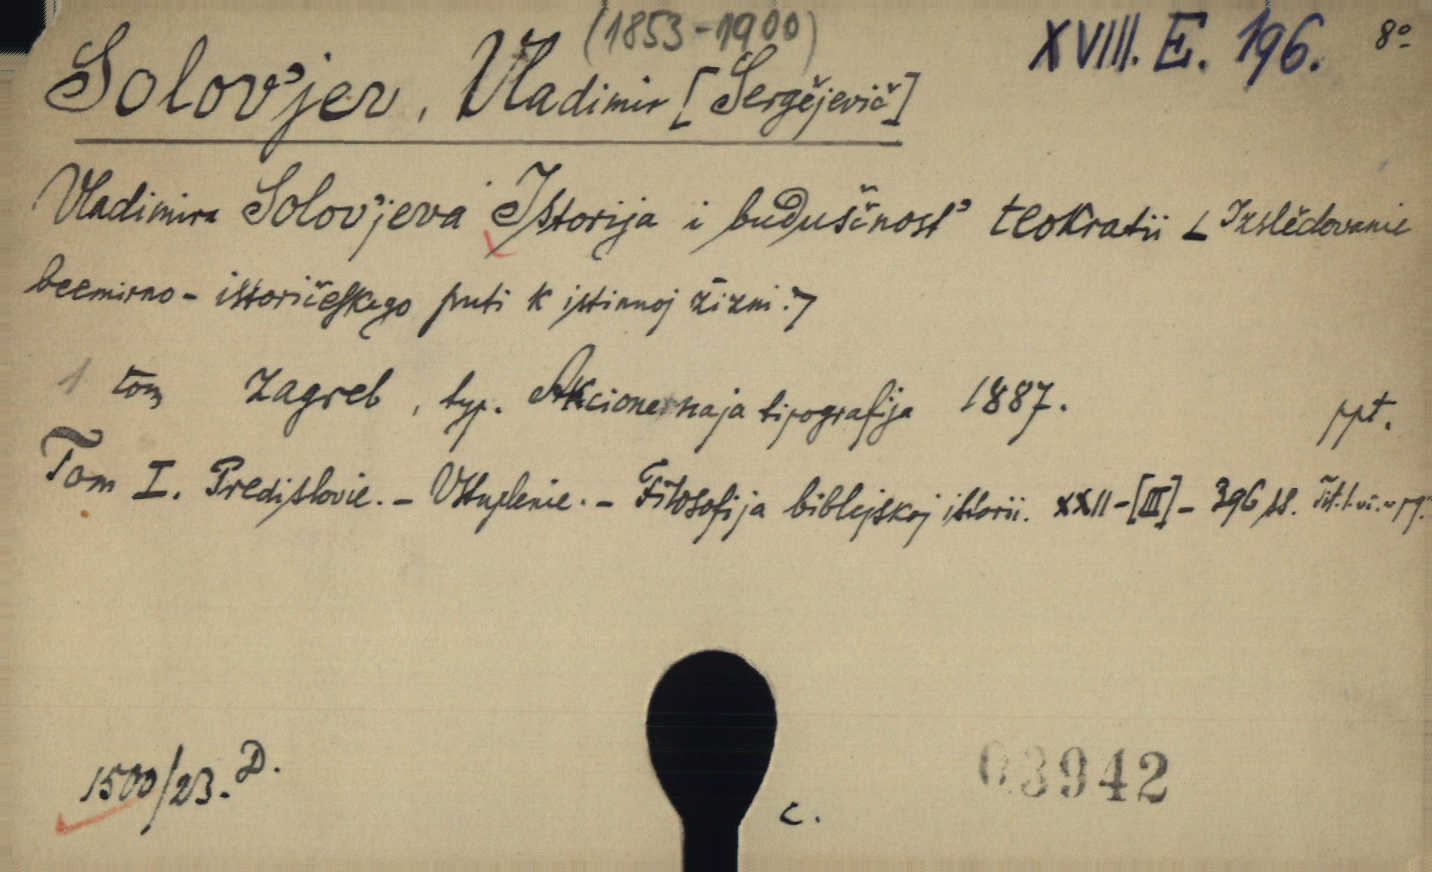 (1853-1900)
XVIII. E. 196. 8º
Solov'jev, Vladimir [Sergějevič]
Vladimira Solov'jeva Istorija i buduščnost' teokratii [Izslědovanie
bcemirno-istoričeskago puti k istinnoj žizni.]
1 tom Zagreb, typ. Akcionernaja tipografija 1887. ppt.
Tom I. Predislovie. - Vstuplenie. - Filosofija biblejskoj istorii. XXII-[III]-396 ss.
1500/23. D.
c.
03942